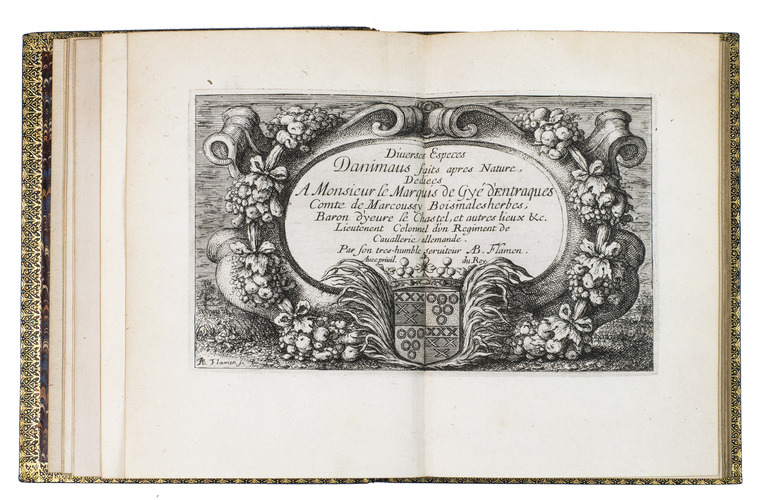 Diuerses Especes
Danimaus faits apres Nature,
Dediees
A Monsieur le Marquis de Gyé d'Entragues
Comte de Marcoussy Boismalesherbes,
Baron dyeure le Chastel, et autres lieux &c.
Lieutenent Colonnel d'vn Regiment de
Cauallerie allemande.
Par son tres-humble seruiteur AB. Flamen.
Auec priuil. du Roy.
AB. Flamen f.